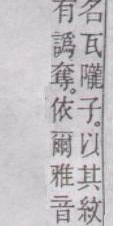 名瓦隴子。以其紋
有譌奪。依爾雅音